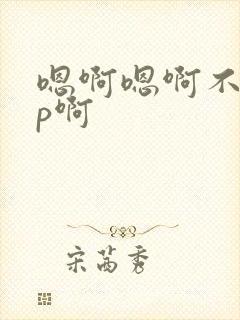 嗯啊嗯啊不
p啊
宋茜秀